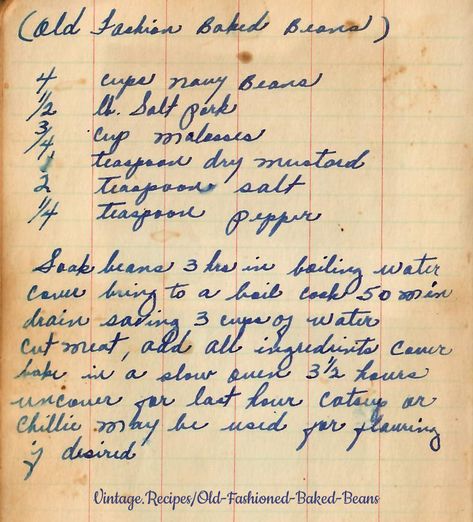 (Old Fashion Baked Beans)
4 cups navy Beans
1/2 lb. Salt Pork
3/4 cup malasses
1 teaspoon dry mustard
2 teaspoon salt
1/4 teaspoon pepper
Soak beans 3 hrs in boiling water
cover bring to a boil cook 50 min
drain saving 3 cups of water
cut meat, add all ingredints cover
bake in a slow oven 3 1/2 hours
uncover for last hour catsup or
chillie may be used for flavring
if desired
Vintage.Recipes/Old-Fashioned-Baked-Beans